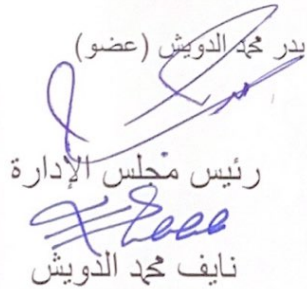 بدر محمد الدويش (عضو)
رئيس مجلس الإدارة
نايف محمد الدويش